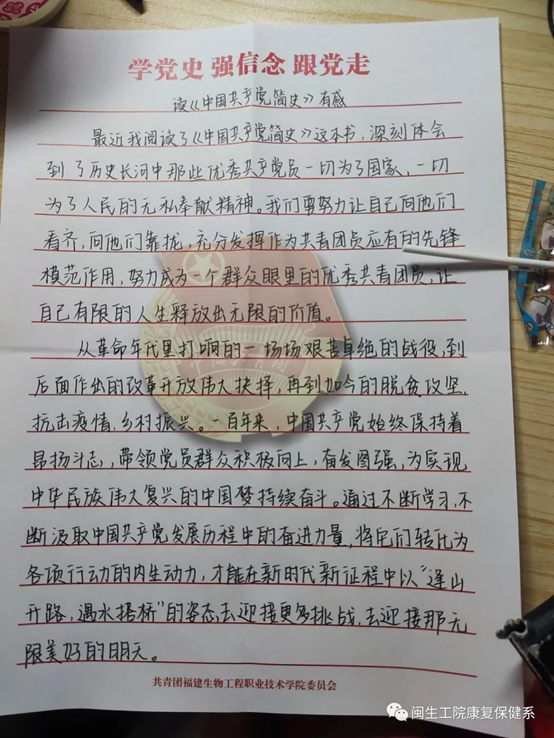 学党史 强信念 跟党走
读《中国共产党简史》有感
最近我阅读了《中国共产党简史》这本书，深刻体会
到了历史长河中那些优秀共产党员一切为了国家、一切
为了人民的无私奉献精神。我们要努力让自己向他们
看齐，向他们靠拢，充分发挥作为共青团员应有的先锋
模范作用，努力成为一个群众眼里的优秀共青团员，让
自己有限的人生释放出无限的价值。
从革命年代里打响的一场场艰苦卓绝的战役，到
后面作出的改革开放伟大抉择，再到如今的脱贫攻坚、
抗击疫情、乡村振兴。一百年来，中国共产党始终保持着
昂扬斗志，带领党员群众积极向上，奋发图强，为实现
中华民族伟大复兴的中国梦持续奋斗。通过不断学习，不
断汲取中国共产党发展历程中的奋进力量，将它们转化为
各项行动的内生动力，才能在新时代新征程中以“逢山
开路，遇水搭桥”的姿态去迎接更多挑战，去迎接那无
限美好的明天。
共青团福建生物工程职业技术学院委员会
闽生工院康复保健系